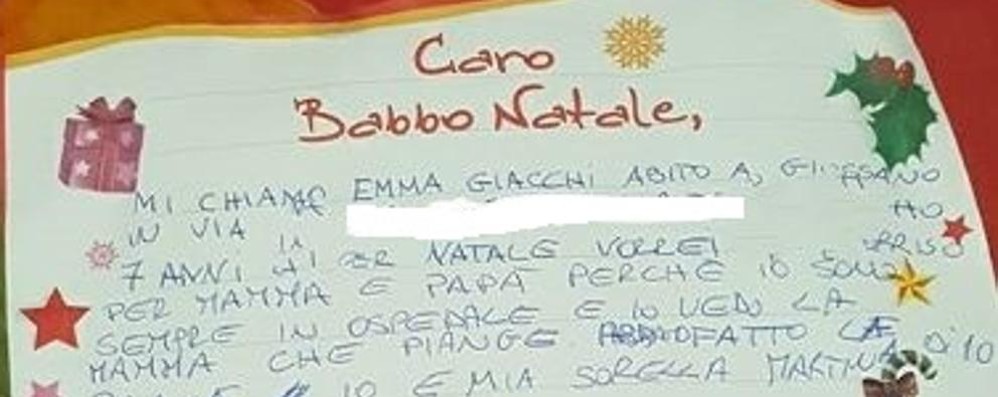 Caro
Babbo Natale,
MI CHIAMO EMMA GIACCHI ABITO A, GIUSSANO
IN VIA HO
7 ANNI PER NATALE VORREI
PER MAMMA E PAPÀ PERCHE IO SONO
SEMPRE IN OSPEDALE E IO VEDO LA
MAMMA CHE PIANGE FATTO LE
IO E MIA SORELLA MARTINA DI 10